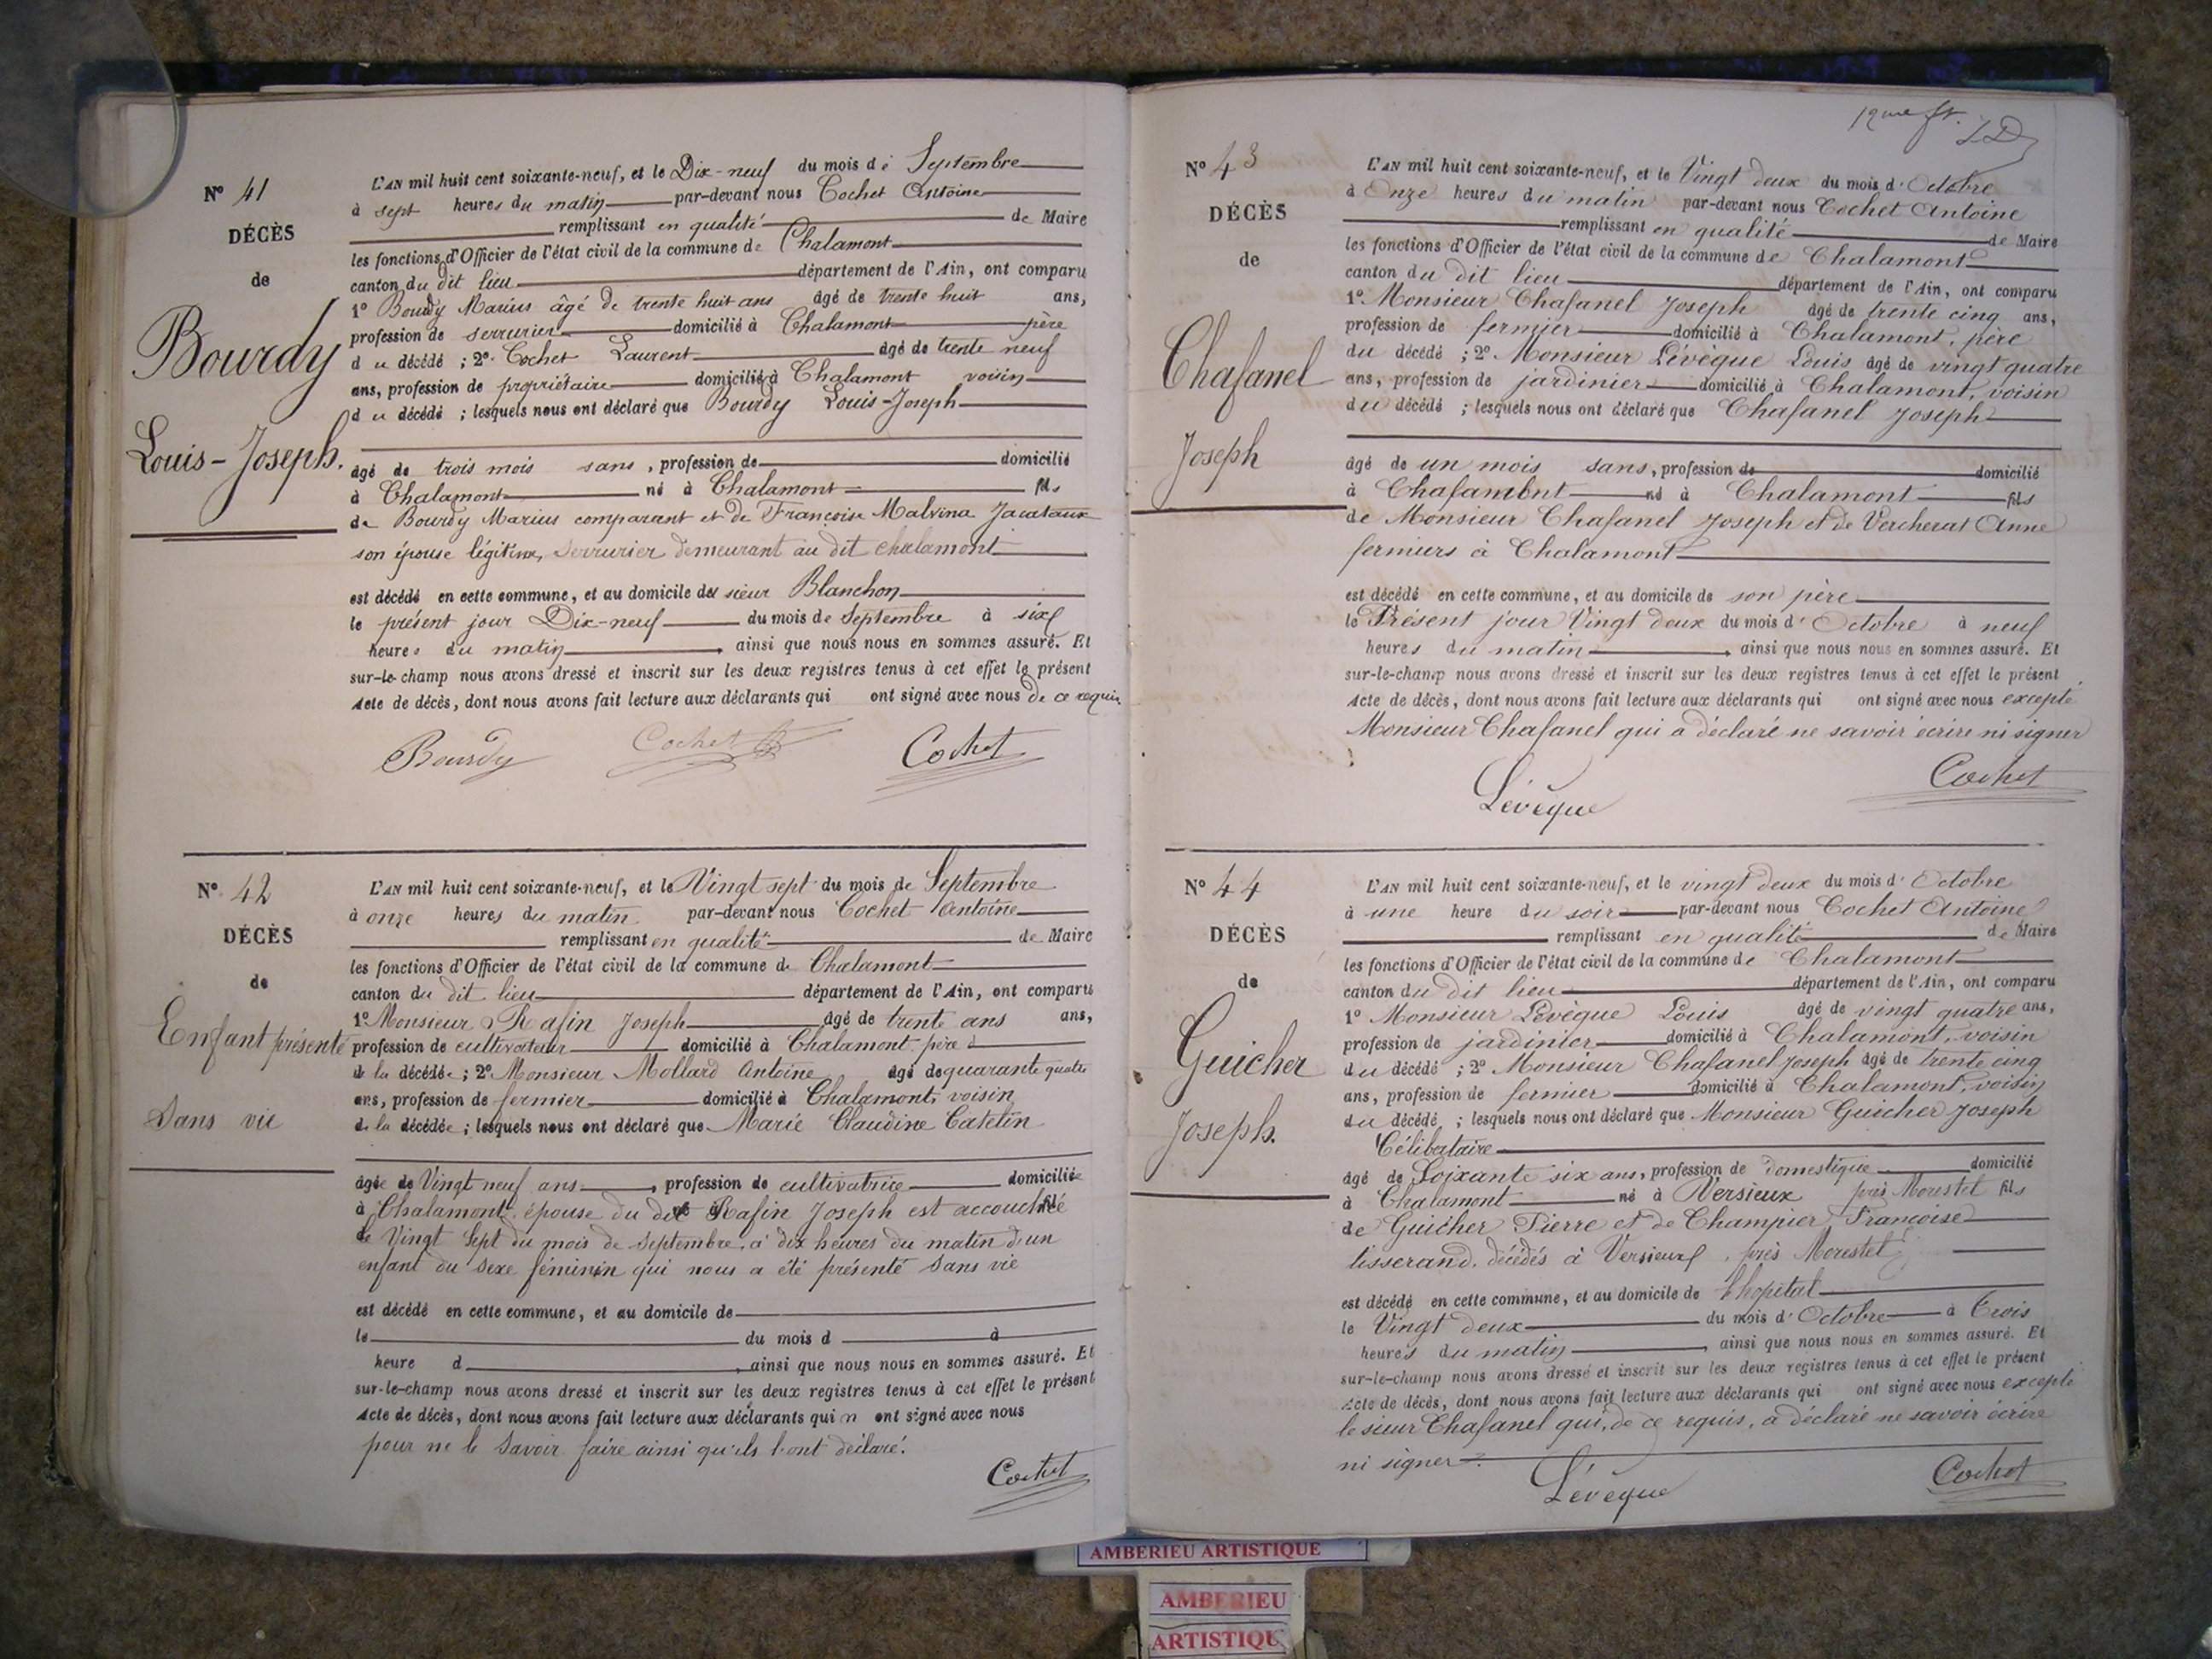 N° 41
DÉCÈS
de
Bourdy
Louis-Joseph.
L'AN mil huit cent soixante-neuf, et le Dix-neuf du mois de Septembre
à sept heures du matin par-devant nous Cochet Antoine
remplissant en qualité de Maire
les fonctions d'Officier de l'état civil de la commune de Chalamont
canton du dit lieu département de l'Ain, ont comparu
1° Bourdy Marius âgé de trente huit ans âgé de trente huit ans,
profession de serrurier domicilié à Chalamont père
du décédé ; 2° Cochet Laurent âgé de trente neuf
ans, profession de propriétaire domicilié à Chalamont voisin
du décédé ; lesquels nous ont déclaré que Bourdy Louis-Joseph
âgé de trois mois sans, profession de domicilié
à Chalamont né à Chalamont fils
de Bourdy Marius comparant et de Françoise Malvina
son épouse légitime, serrurier demeurant au dit chalamont
est décédé en cette commune, et au domicile del sieur Blanchon
le présent jour Dix-neuf du mois de Septembre à six
heures du matin, ainsi que nous nous en sommes assuré. Et
sur-le-champ nous avons dressé et inscrit sur les deux registres tenus à cet effet le présent
Acte de décès, dont nous avons fait lecture aux déclarants qui ont signé avec nous de ce requis
Bourdy Cochet Cochet
N° 42
DÉCÈS
de
Enfant présenté
Sans vie
L'AN mil huit cent soixante-neuf, et le Vingt sept du mois de Septembre
à onze heures du matin par-devant nous Cochet Antoine
remplissant en qualité de Maire
les fonctions d'Officier de l'état civil de la commune de Chalamont
canton du dit lieu département de l'Ain, ont comparu
1° Monsieur Rafin Joseph âgé de trente ans ans,
profession de cultivateur domicilié à Chalamont père
de la décédée ; 2° Monsieur Mollard Antoine âgé de quarante quatre
ans, profession de fermier domicilié à Chalamont, voisin
de la décédée ; lesquels nous ont déclaré que Marie Claudine Catelin
âgée de Vingt neuf ans, profession de cultivatrice domiciliée
à Chalamont, épouse du dit Rafin Joseph est accouchée
le Vingt Sept du mois de Septembre, à dix heures du matin d'un
enfant du sexe féminin qui nous a été présenté sans vie
est décédé en cette commune, et au domicile de
le du mois d à
heure d, ainsi que nous nous en sommes assuré. Et
sur-le-champ nous avons dressé et inscrit sur les deux registres tenus à cet effet le présent
Acte de décès, dont nous avons fait lecture aux déclarants qui n ont signé avec nous
pour ne le savoir faire ainsi qu'ils l'ont déclaré.
Cochet
N° 43
DÉCÈS
de
Chafanel
Joseph
L'AN mil huit cent soixante-neuf, et le Vingt deux du mois d'Octobre
à Onze heures du matin par-devant nous Cochet Antoine
remplissant en qualité de Maire
les fonctions d'Officier de l'état civil de la commune de Chalamont
canton du dit lieu département de l'Ain, ont comparu
1° Monsieur Chafanel Joseph âgé de trente cinq ans,
profession de fermier domicilié à Chalamont, père
du décédé ; 2° Monsieur Lévèque Louis âgé de vingt quatre
ans, profession de jardinier domicilié à Chalamont, voisin
du décédé ; lesquels nous ont déclaré que Chafanel Joseph
âgé de un mois sans, profession de domicilié
à Chalamont né à Chalamont fils
de Monsieur Chafanel Joseph et de Vercherat Anne
fermiers à Chalamont
est décédé en cette commune, et au domicile de son père
le Présent jour Vingt deux du mois d'Octobre à neuf
heures du matin, ainsi que nous nous en sommes assuré. Et
sur-le-champ nous avons dressé et inscrit sur les deux registres tenus à cet effet le présent
Acte de décès, dont nous avons fait lecture aux déclarants qui ont signé avec nous excepté
Monsieur Chafanel qui a déclaré ne savoir écrire ni signer
Lévêque Cochet
N° 44
DÉCÈS
de
Guicher
Joseph.
L'AN mil huit cent soixante-neuf, et le vingt deux du mois d'Octobre
à une heure du soir par-devant nous Cochet Antoine
remplissant en qualité de Maire
les fonctions d'Officier de l'état civil de la commune de Chalamont
canton du dit lieu département de l'Ain, ont comparu
1° Monsieur Levèque Louis âgé de vingt quatre ans,
profession de jardinier domicilié à Chalamont, voisin
du décédé ; 2° Monsieur Chafanel Joseph âgé de trente cinq
ans, profession de fermier domicilié à Chalamont, voisin
du décédé ; lesquels nous ont déclaré que Monsieur Guicher Joseph
Célibataire
âgé de Soixante six ans, profession de domestique domicilié
à Chalamont né à Versieux près Morestel fils
de Guicher Pierre et de Champier Françoise
tisserand, décédés à Versieux, près Morestel
est décédé en cette commune, et au domicile de l'hopital
le Vingt deux du mois d'Octobre à Trois
heures du matin, ainsi que nous nous en sommes assuré. Et
sur-le-champ nous avons dressé et inscrit sur les deux registres tenus à cet effet le présent
Acte de décès, dont nous avons fait lecture aux déclarants qui ont signé avec nous excepté
le sieur Chafanel qui, de ce requis, a déclaré ne savoir écrire
ni signer
Lévêque Cochet
AMBERIEU ARTISTIQUE
AMBERIEU
ARTISTIQU